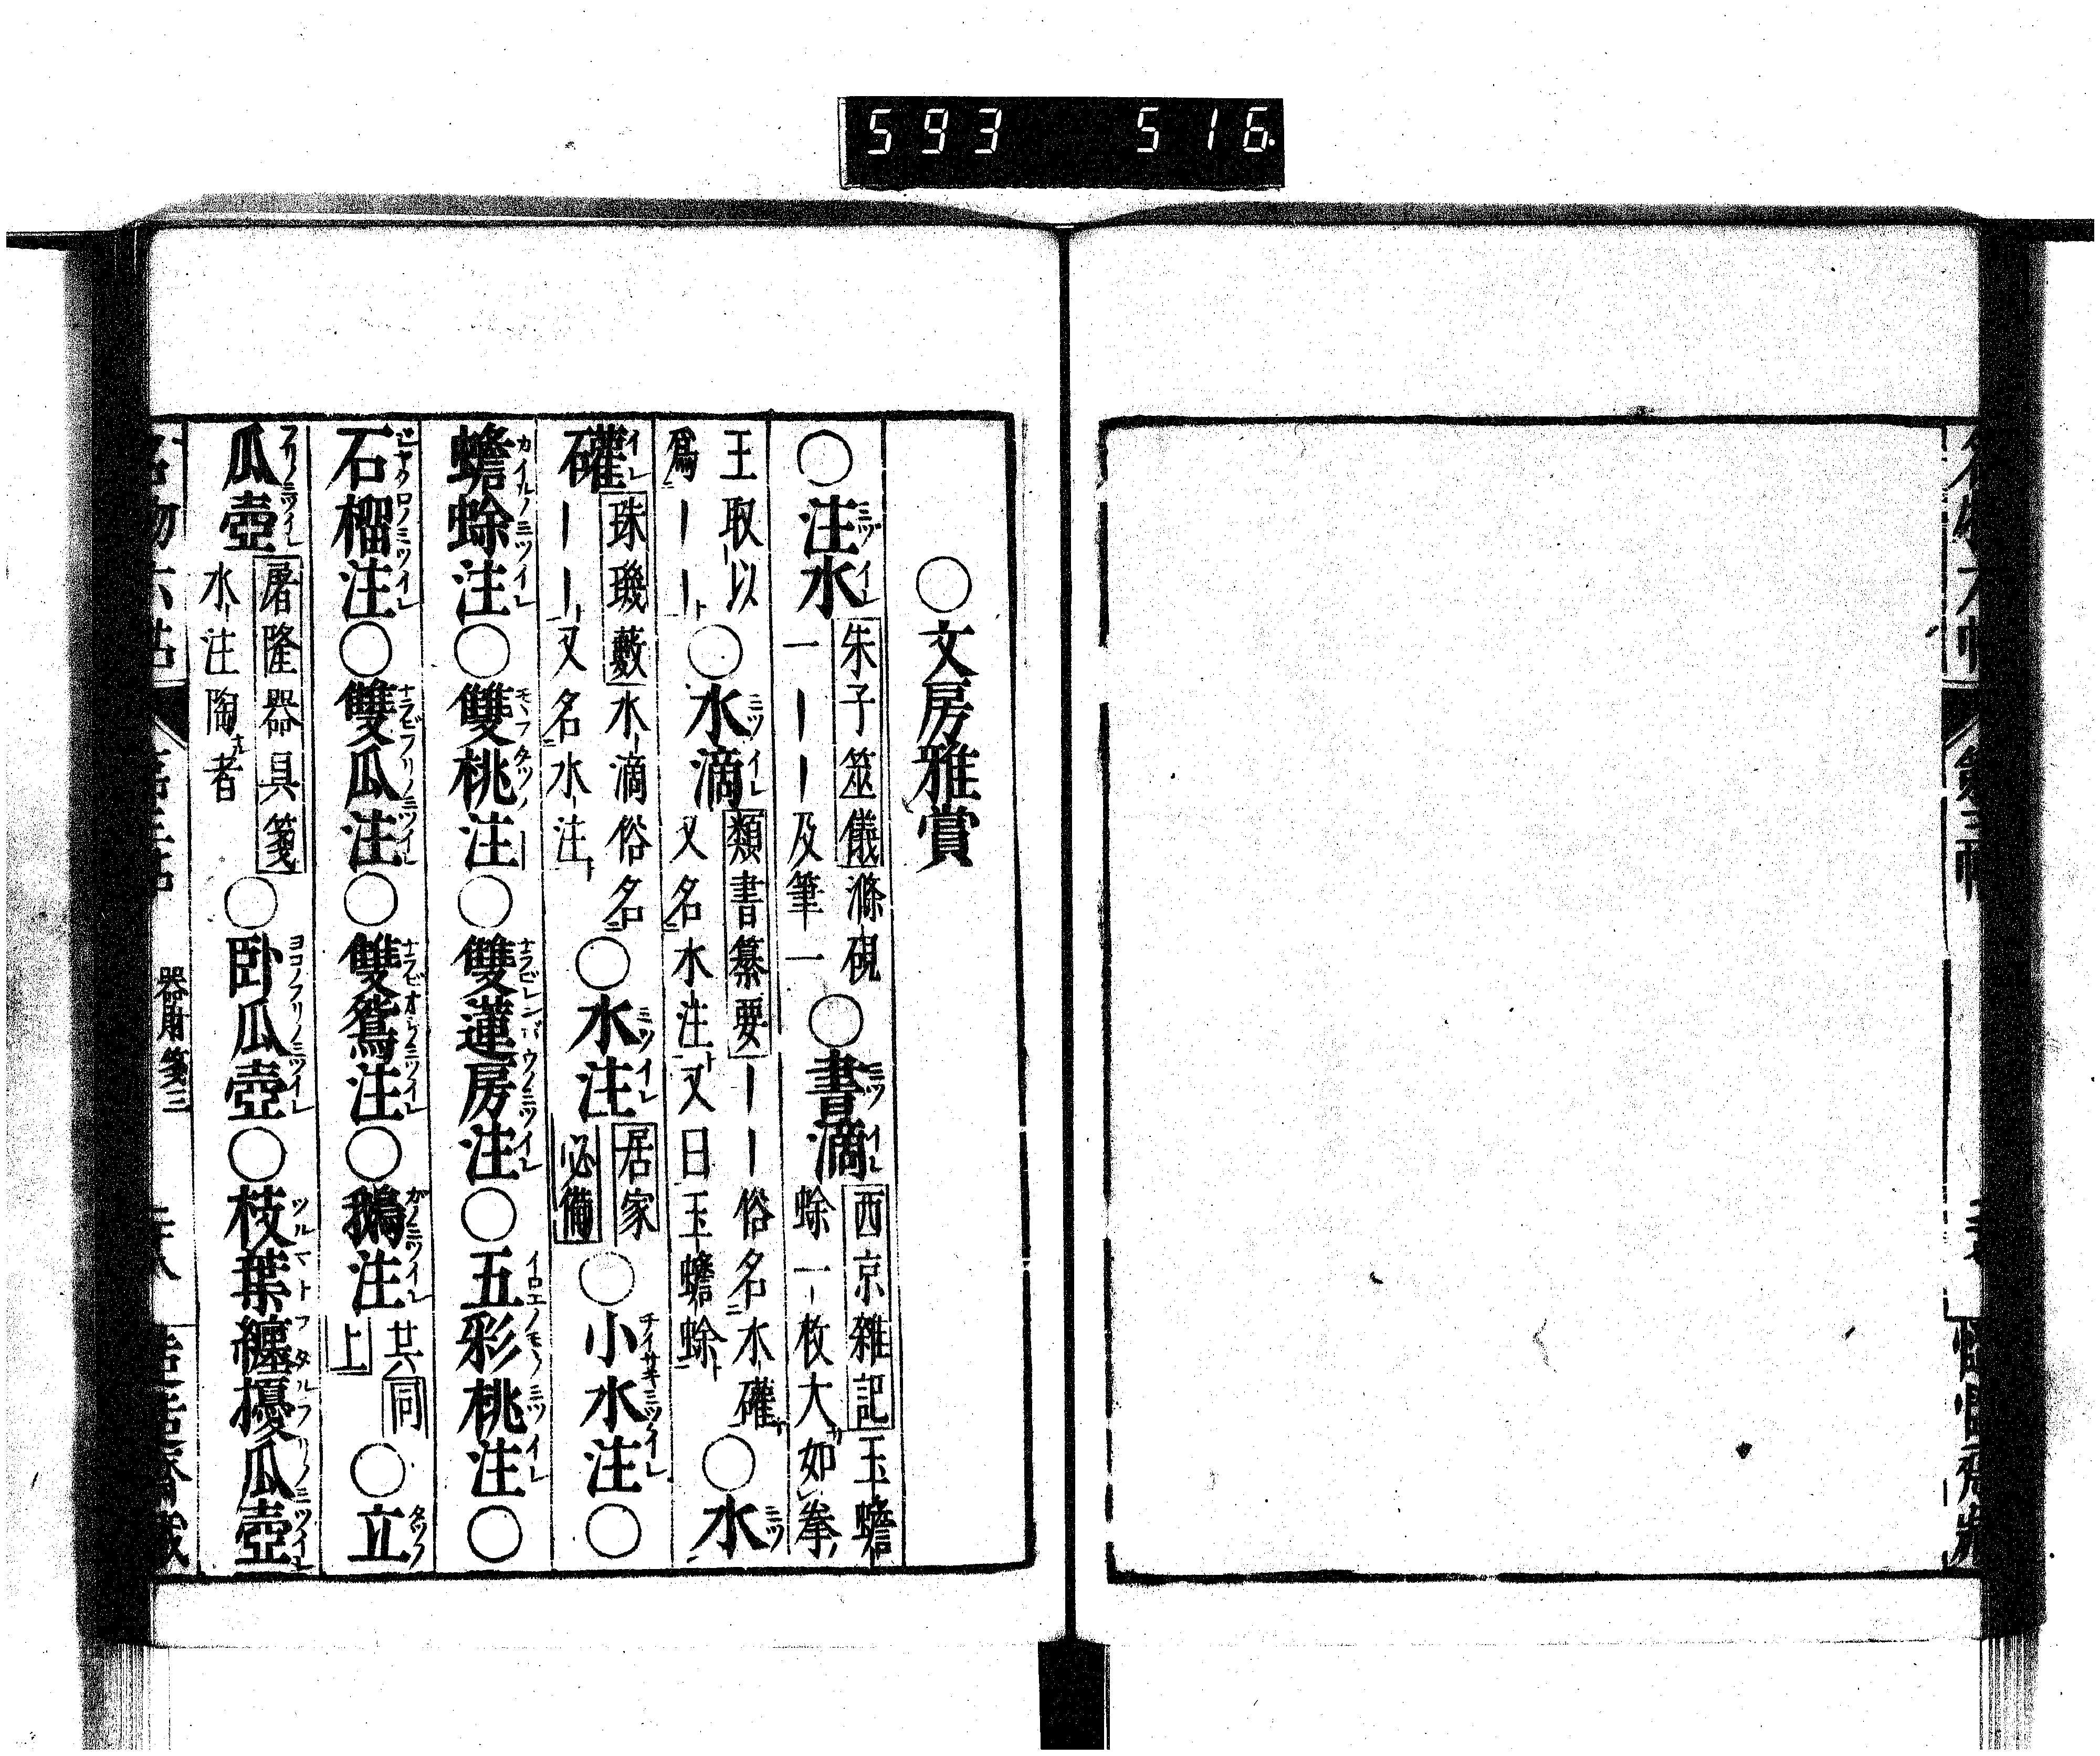 593 516
○文房雅賞
○注水ミヅイレ 朱子筮儀 滌硯
一｜｜｜及筆一 ○書滴ミツイレ 西京雜記 玉蟾
蜍一枚大如拳
王取以
爲｜｜ ○水滴ミツイレ 類書纂要 ｜｜俗名水礶
又名水注又曰玉蟾蜍 ○水ミツ
礶イレ 珠璣藪 水滴俗名
｜｜又名水注 ○水注ミツイレ 居家
必備 ○小水注チイサキミツイレ○
蟾蜍注カイルノミツイレ○雙桃注モヽフタツノ｜○雙蓮房注ナラビレンバウノミツイレ○五彩桃注イロエノモヽノミツイレ○
石榴注ジヤクロノミツイレ○雙瓜注ナラビフリノミツイレ○雙鴛注ナラビオシノミツイレ○鵝注ガノミツイレ 共同
上 ○立タツノ
瓜壺フリノミツイレ 屠隆器具箋
水注陶者 ○卧瓜壺ヨコノフリノミツイレ○枝葉纏擾瓜壺ツルマトフタルフリノミツイレ
器財箋三